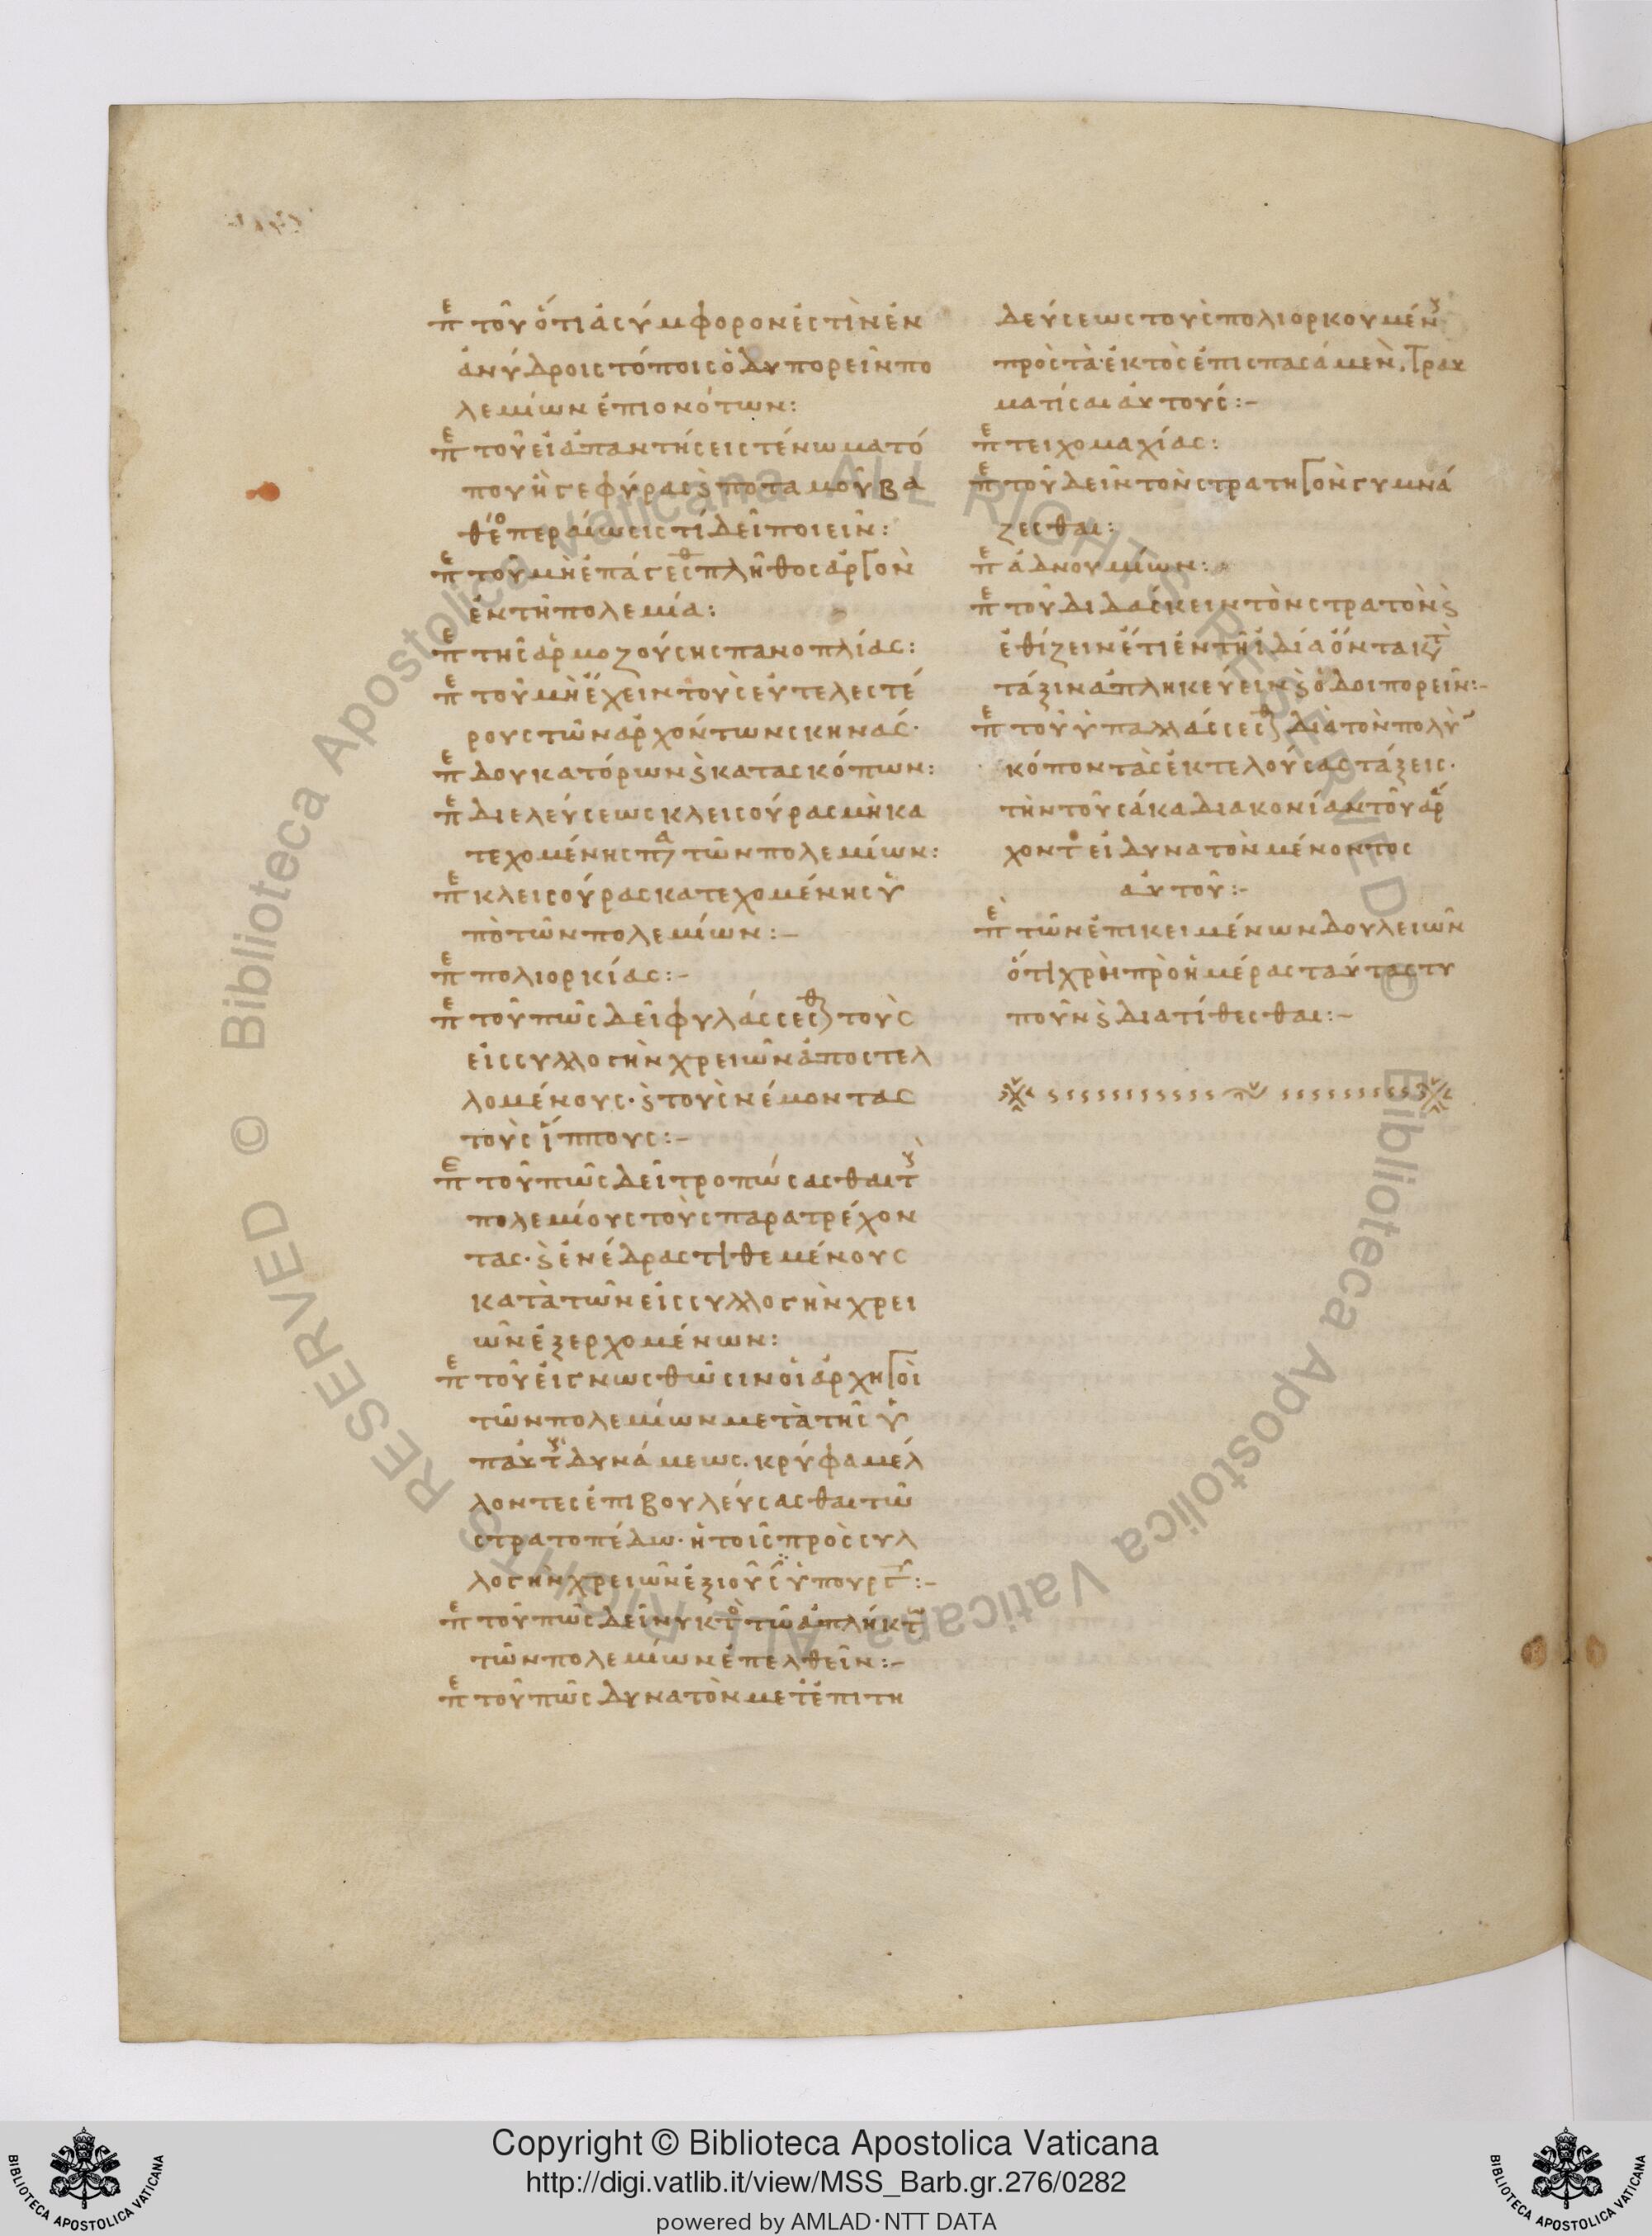 πε τοῦ ὅτι ἀσύμφορον ἐστὶν ἐν
ἀνύδροις τόποις ὁδυπορεῖν πο
λεμίων ἐπιονότων:
πε τοῦ εἰ ἀπαντήσει στένωμα τό
που ἢ γεφύρας ϛ ποταμοῦ βα
θέο περαίωσις τί δεῖ ποιεῖν:
πε τοῦ μὴ ἐπάγεσθ πλῆθος ἀργὸν
ἐν τῆ πολεμία:
πε τῆς ἁρμοζούσης πανοπλίας:
πε τοῦ μὴ ἔχειν τοὺς εὐτελεστέ
ρους τῶν ἀρχόντων σκηνάς·
πε δουκατόρων ϛ κατασκόπων:
πε διελεύσεως κλεισούρας μὴ κα
τεχομένης πα τῶν πολεμίων:
πε κλεισούρας κατεχομένης ὑ
πὸ τῶν πολεμίων:–
πε πολιορκίας:–
πε τοῦ πῶς δεῖ φυλάσσεσθ τοὺς
εἰς συλλογὴν χρειῶν ἀποστελ
λομένους· ϛ τοὺς νέμοντας
τοὺς ἵππους:–
πε τοῦ πῶς δεῖ τροπώσασθαι τ
πολεμίους τοὺς παρατρέχον
τας· ϛ ἐνέδρας τιθεμένους
κατὰ τῶν εἰς συλλογὴν χρει
ῶν ἐξερχομένων:
πε τοῦ εἰ γνωσθῶσιν οἱ ἀρχηγοὶ
τῶν πολεμίων μετὰ τῆς ὑ
π αὐτ δυνάμεως. κρύφα μέλ
λοντες ἐπιβουλεύσασθαι τῶ
στρατοπέδω· ἢ τοῖς πρὸς συλ
λογὴν χρειῶν ἐξιοῦσ ὑπουργ:–
πε τοῦ πῶς δεῖ νυκτὸ τῶ ἀπλήκτ
τῶν πολεμίων ἐπελθεῖν:–
πε τοῦ πῶς δυνατὸν μετ ἐπιτη
δεύσεως τοὺς πολιορκουμέν
πρὸς τὰ ἐκτὸς ἐπισπασάμεν, τραυ
ματίσαι αὐτούς:–
πε τειχομαχίας:
πε τοῦ δεῖν τὸν στρατηγὸν γυμνά
ζεσθαι:
πε ἀδνουμίων:
πε τοῦ διδάσκειν τὸν στρατὸν ϛ
ἐθίζειν ἔτι ἐν τῆ ἰδία ὄντα
τάξιν ἀπληκεύειν ϛ ὁδοιπορεῖν:–
πε τοῦ ὑπαλλάσσεσθ διὰ τὸν πολὺ
κόπον τὰς ἐκτελούσας τάξεις·
τὴν τοῦ σάκα διακονίαν τοῦ ἄρ
χοντο εἰ δυνατὸν μένοντος
αὐτοῦ:–
πε τῶν ἐπικειμένων δουλειῶν
ὅτι χρὴ πρὸ ἡμέρας ταύτας τυ
ποῦν ϛ διατίθεσθαι:–
Copyright © Biblioteca Apostolica Vaticana
http://digi.vatlib.it/view/MSS_Barb.gr.276/0282
powered by AMLAD·NTT DATA
BIBLIOTECA APOSTOLICA VATICANA
BIBLIOTECA APOSTOLICA VATICANA
© Biblioteca Apostolica Vaticana ALL RIGHTS RESERVED
© Biblioteca Apostolica Vaticana ALL RIGHTS RESERVED